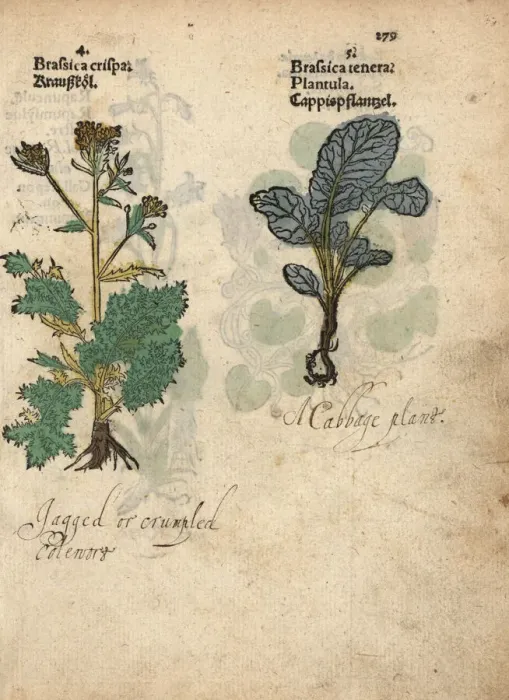 279
4.
Brassica crispa.
Kraußköl.
5.
Brassica tenera.
Plantula.
Cappispflantzel.
A Cabbage plant.
Jagged or crumpled
Colewort